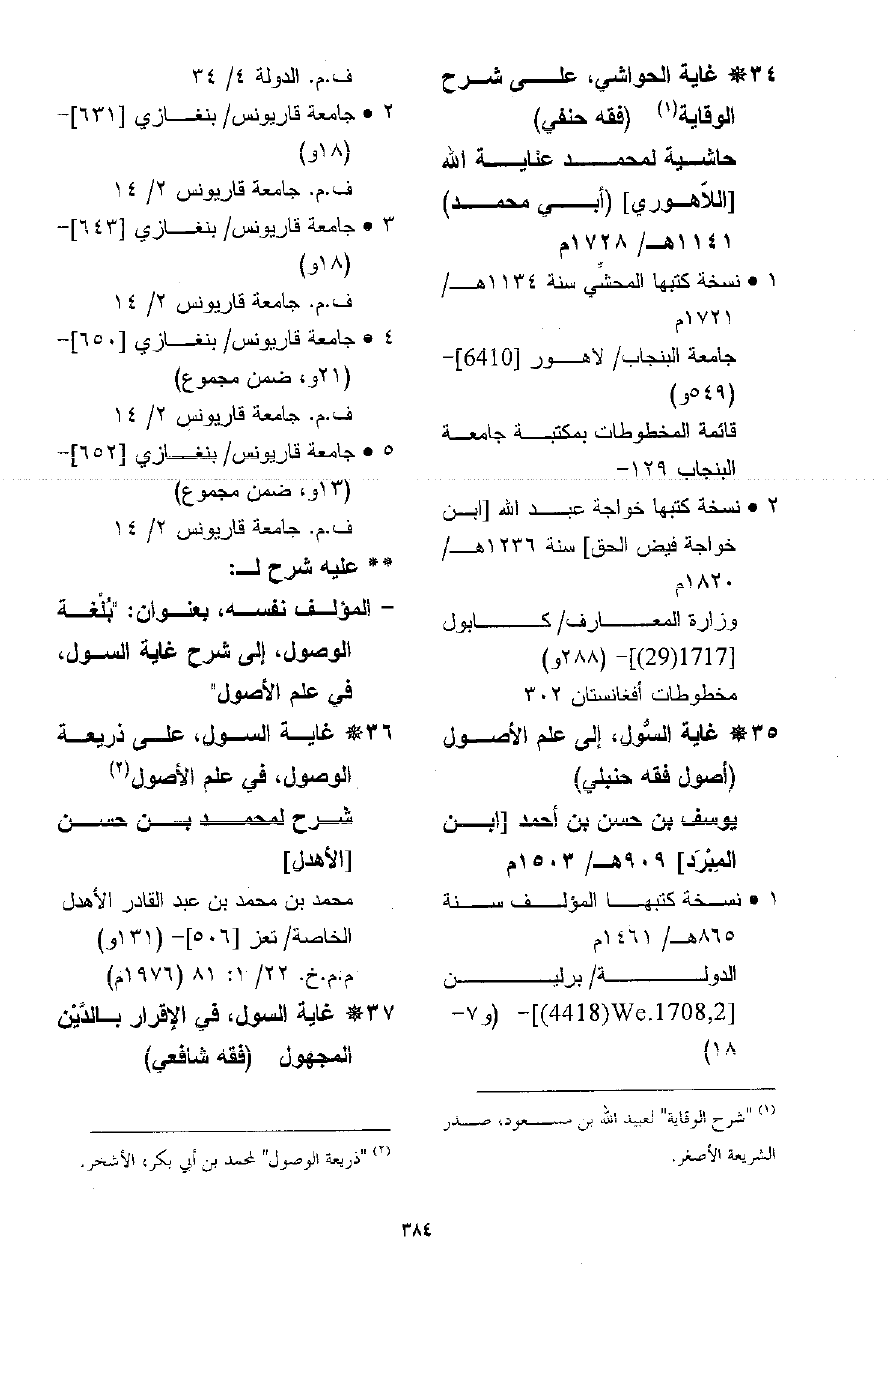 ٣٤* غاية الحواشي، على شرح
الوقاية(١) (فقه حنفي)
حاشية لمحمد عناية الله
[اللاّهوري] (أبي محمد)
١١٤١هـ/ ١٧٢٨م
١ • نسخة كتبها المحشّي سنة ١١٣٤هـ/
١٧٢١م
جامعة البنجاب/ لاهور [6410]-
(٥٤٩و)
قائمة المخطوطات بمكتبة جامعة
البنجاب ١٢٩-
٢ • نسخة كتبها خواجة عبد الله [ابن
خواجة فيض الحق] سنة ١٢٣٦هـ/
١٨٢٠م
وزارة المعارف/ كابول
[1717(29)]- (٢٨٨و)
مخطوطات أفغانستان ٣٠٢
٣٥* غاية السُّول، إلى علم الأصول
(أصول فقه حنبلي)
يوسف بن حسن بن أحمد [ابن
المِبْرَد] ٩٠٩هـ/ ١٥٠٣م
١ • نسخة كتبها المؤلف سنة
٨٦٥هـ/ ١٤٦١م
الدولة/ برلين
[We.1708,2(4418)]- (و٧-
١٨)
(١) "شرح الوقاية" لعبيد الله بن مسعود، صدر
الشريعة الأصغر.
ف.م. الدولة ٤/ ٣٤
٢ • جامعة قاريونس/ بنغازي [٦٣١]-
(١٨و)
ف.م. جامعة قاريونس ٢/ ١٤
٣ • جامعة قاريونس/ بنغازي [٦٤٣]-
(١٨و)
ف.م. جامعة قاريونس ٢/ ١٤
٤ • جامعة قاريونس/ بنغازي [٦٥٠]-
(٢١و، ضمن مجموع)
ف.م. جامعة قاريونس ٢/ ١٤
٥ • جامعة قاريونس/ بنغازي [٦٥٢]-
(١٣و، ضمن مجموع)
ف.م. جامعة قاريونس ٢/ ١٤
** عليه شرح لـ:
- المؤلف نفسه، بعنوان: "بُلْغة
الوصول، إلى شرح غاية السول،
في علم الأصول"
٣٦* غاية السول، على ذريعة
الوصول، في علم الأصول(٢)
شرح لمحمد بن حسن
[الأهدل]
محمد بن محمد بن عبد القادر الأهدل
الخاصة/ تعز [٥٠٦]- (١٣١و)
م.م.خ. ٢٢/ ١: ٨١ (١٩٧٦م)
٣٧* غاية السول، في الإقرار بالدَّيْن
المجهول (فقه شافعي)
(٢) "ذريعة الوصول" لمحمد بن أبي بكر، الأشخر.
٣٨٤